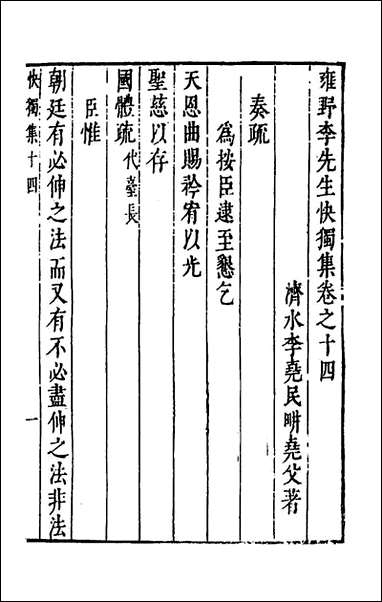 雍野李先生快獨集卷之十四
濟水李堯民畊堯父著
奏疏
爲按臣逮至懇乞
天恩曲賜矜宥以光
聖慈以存
國體疏代臺長
臣惟
朝廷有必伸之法而又有不必盡伸之法非法
快獨集十四
一